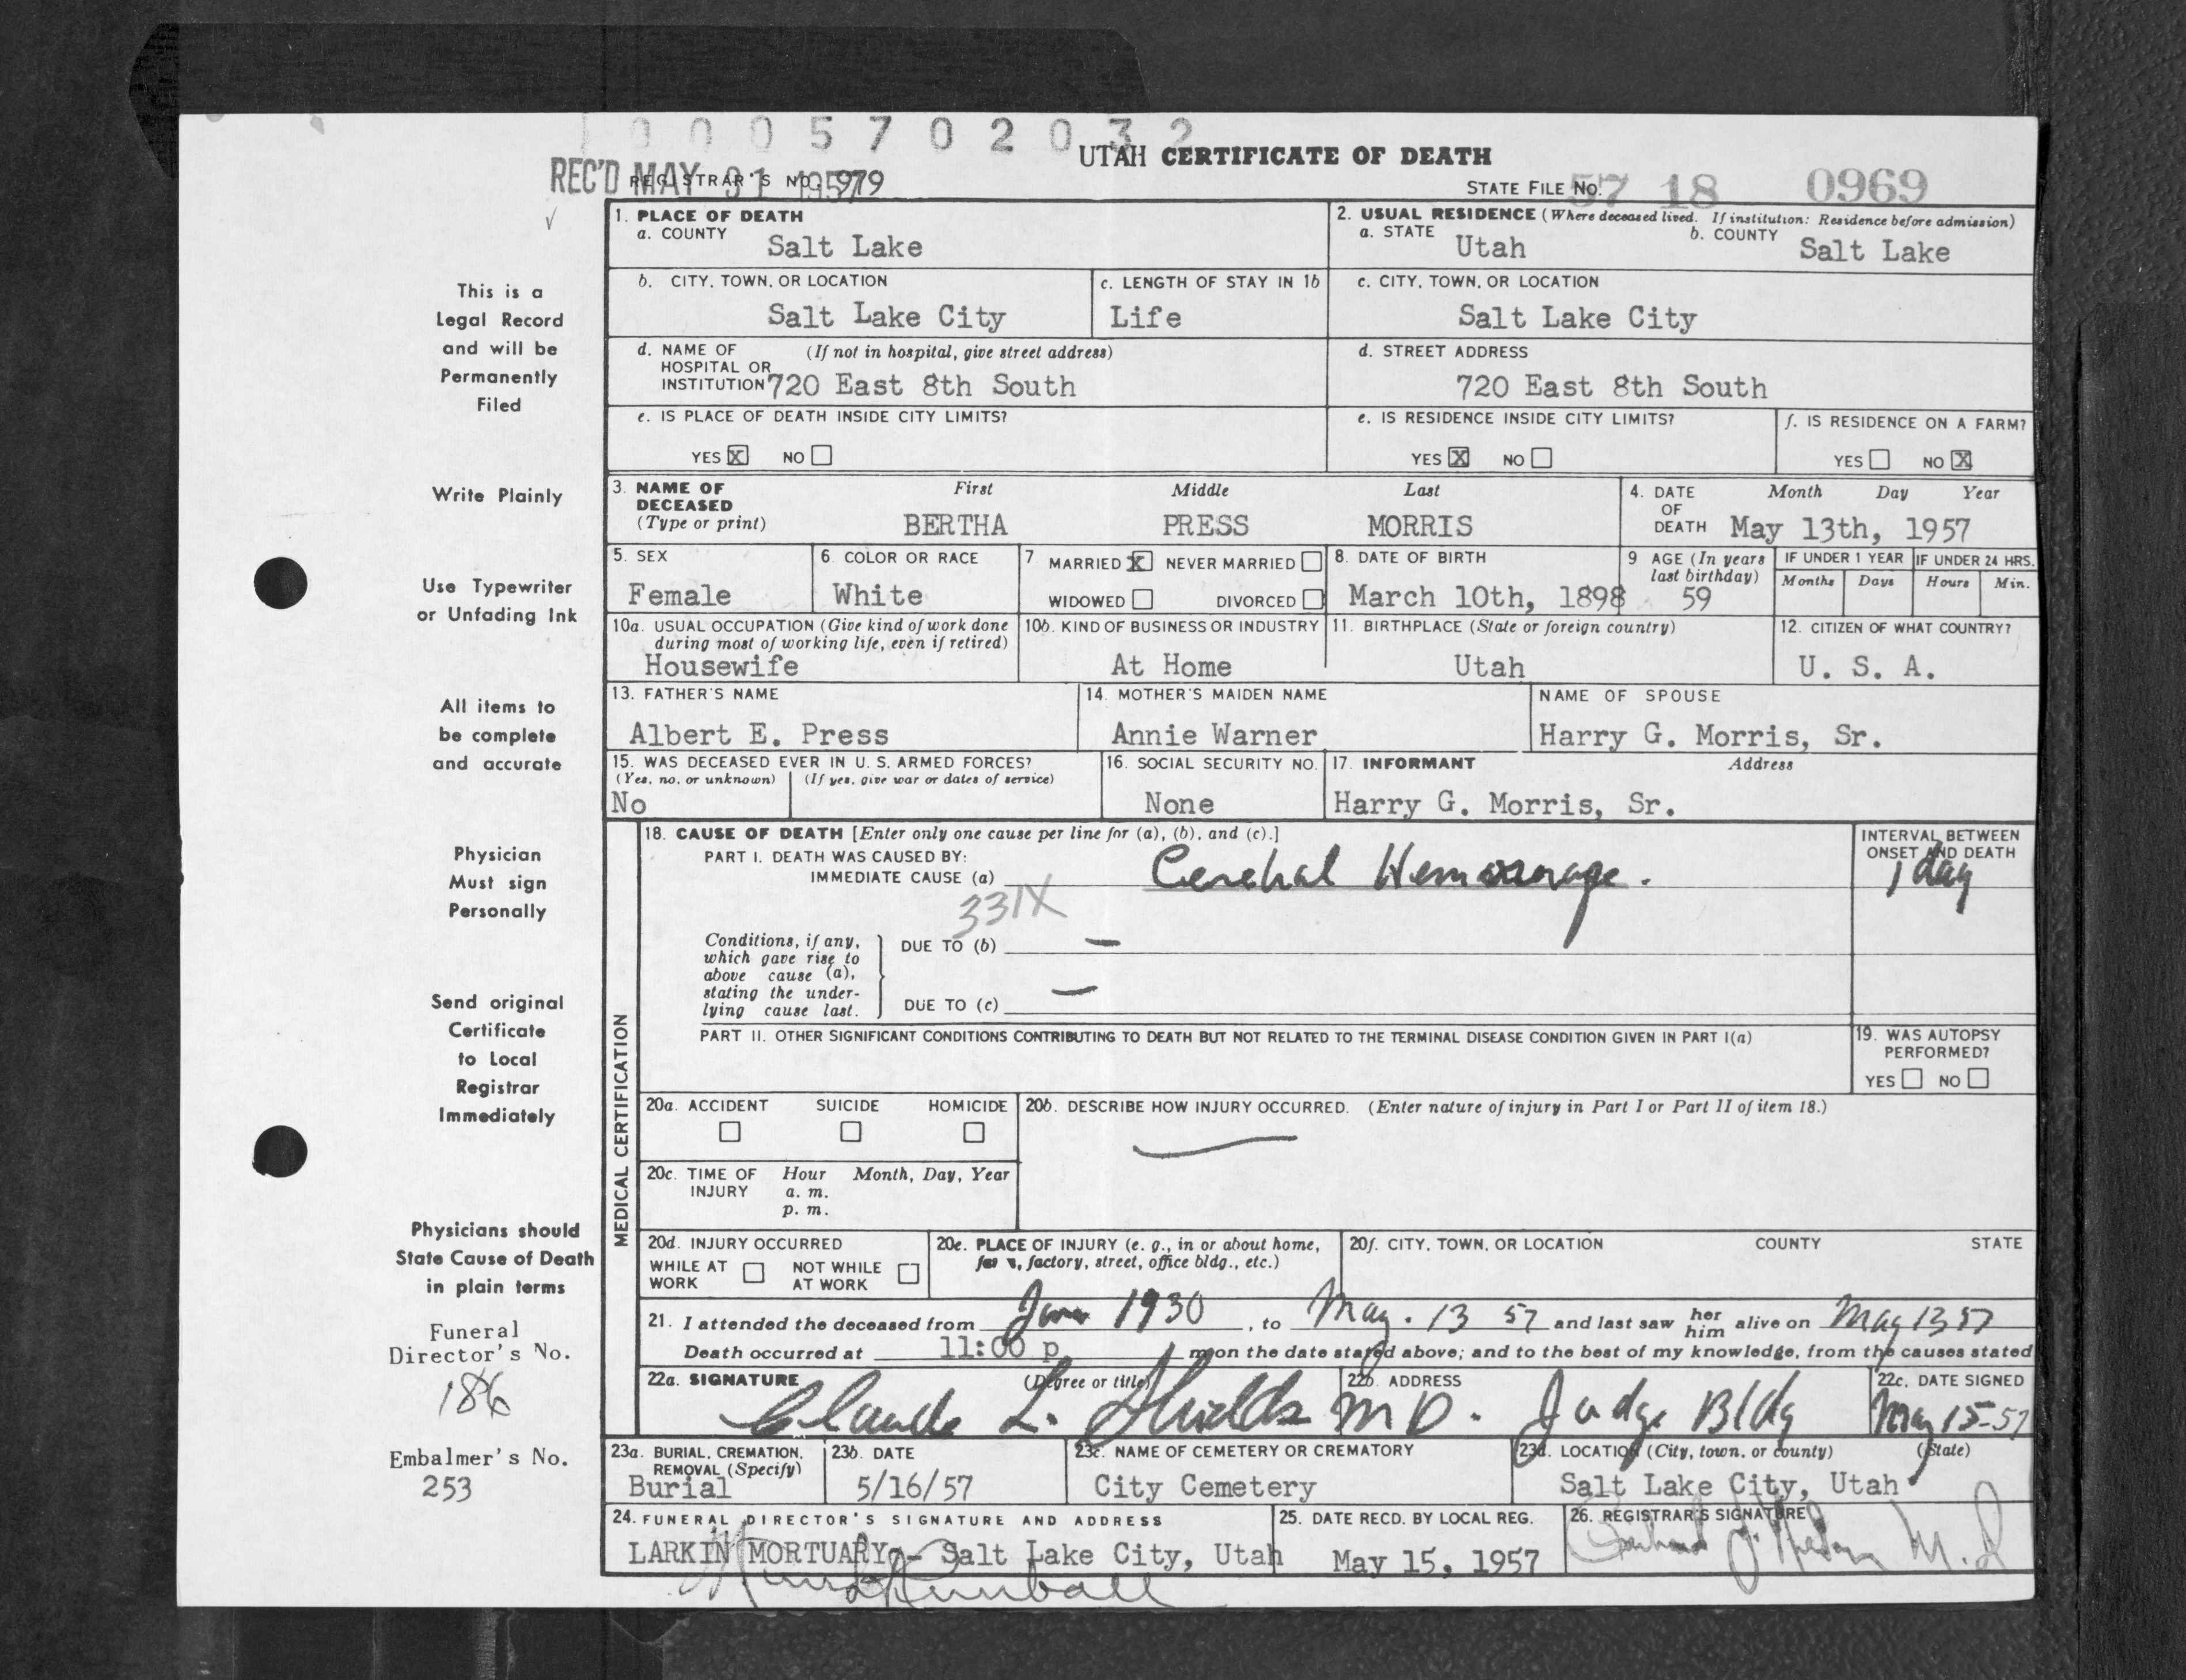 0 0 0 5 7 0 2 0 3 2
UTAH CERTIFICATE OF DEATH
REC'D MAY 31 1957
REGISTRAR'S NO. 979
STATE FILE NO. 57 18 0969
1. PLACE OF DEATH
a. COUNTY Salt Lake
2. USUAL RESIDENCE (Where deceased lived. If institution: Residence before admission)
a. STATE Utah b. COUNTY Salt Lake
b. CITY, TOWN, OR LOCATION
Salt Lake City
c. LENGTH OF STAY IN 1b
Life
c. CITY, TOWN, OR LOCATION
Salt Lake City
d. NAME OF (If not in hospital, give street address)
HOSPITAL OR
INSTITUTION 720 East 8th South
d. STREET ADDRESS
720 East 8th South
e. IS PLACE OF DEATH INSIDE CITY LIMITS?
YES X NO
e. IS RESIDENCE INSIDE CITY LIMITS?
YES X NO
f. IS RESIDENCE ON A FARM?
YES NO X
3. NAME OF DECEASED (Type or print)
First Middle Last
BERTHA PRESS MORRIS
4. DATE OF DEATH Month Day Year
May 13th, 1957
5. SEX
Female
6. COLOR OR RACE
White
7 MARRIED X NEVER MARRIED
WIDOWED DIVORCED
8. DATE OF BIRTH
March 10th, 1898
9 AGE (In years last birthday)
59
IF UNDER 1 YEAR IF UNDER 24 HRS.
Months Days Hours Min.
10a. USUAL OCCUPATION (Give kind of work done
during most of working life, even if retired)
Housewife
10b. KIND OF BUSINESS OR INDUSTRY
At Home
11. BIRTHPLACE (State or foreign country)
Utah
12. CITIZEN OF WHAT COUNTRY?
U. S. A.
13. FATHER'S NAME
Albert E. Press
14. MOTHER'S MAIDEN NAME
Annie Warner
NAME OF SPOUSE
Harry G. Morris, Sr.
15. WAS DECEASED EVER IN U. S. ARMED FORCES?
(Yes, no, or unknown) (If yes, give war or dates of service)
No
16. SOCIAL SECURITY NO.
None
17. INFORMANT Address
Harry G. Morris, Sr.
MEDICAL CERTIFICATION
18. CAUSE OF DEATH [Enter only one cause per line for (a), (b), and (c).]
PART I. DEATH WAS CAUSED BY:
IMMEDIATE CAUSE (a) Cerebral Hemorrhage.
331X
INTERVAL BETWEEN
ONSET AND DEATH
1 day
Conditions, if any,
which gave rise to
above cause (a),
stating the under-
lying cause last.
DUE TO (b) —
DUE TO (c) —
PART II. OTHER SIGNIFICANT CONDITIONS CONTRIBUTING TO DEATH BUT NOT RELATED TO THE TERMINAL DISEASE CONDITION GIVEN IN PART I(a)
19. WAS AUTOPSY
PERFORMED?
YES NO
20a. ACCIDENT SUICIDE HOMICIDE
20b. DESCRIBE HOW INJURY OCCURRED. (Enter nature of injury in Part I or Part II of item 18.)
20c. TIME OF INJURY Hour Month, Day, Year
a. m.
p. m.
20d. INJURY OCCURRED
WHILE AT WORK NOT WHILE AT WORK
20e. PLACE OF INJURY (e. g., in or about home,
farm, factory, street, office bldg., etc.)
20f. CITY, TOWN, OR LOCATION COUNTY STATE
21. I attended the deceased from 1930, to May. 13 57 and last saw her him alive on May 13 57
Death occurred at 11:00 p m on the date stated above; and to the best of my knowledge, from the causes stated
22a. SIGNATURE (Degree or title)
Claude L. Shields M D.
22b. ADDRESS
Judge Bldg
22c. DATE SIGNED
May 15-57
23a. BURIAL, CREMATION,
REMOVAL (Specify)
Burial
23b. DATE
5/16/57
23c. NAME OF CEMETERY OR CREMATORY
City Cemetery
23d. LOCATION (City, town, or county) (State)
Salt Lake City, Utah
24. FUNERAL DIRECTOR'S SIGNATURE AND ADDRESS
LARKIN MORTUARY -- Salt Lake City, Utah
Kimball
25. DATE RECD. BY LOCAL REG.
May 15, 1957
26. REGISTRAR'S SIGNATURE
M. D
This is a
Legal Record
and will be
Permanently
Filed
Write Plainly
Use Typewriter
or Unfading Ink
All items to
be complete
and accurate
Physician
Must sign
Personally
Send original
Certificate
to Local
Registrar
Immediately
Physicians should
State Cause of Death
in plain terms
Funeral
Director's No.
186
Embalmer's No.
253